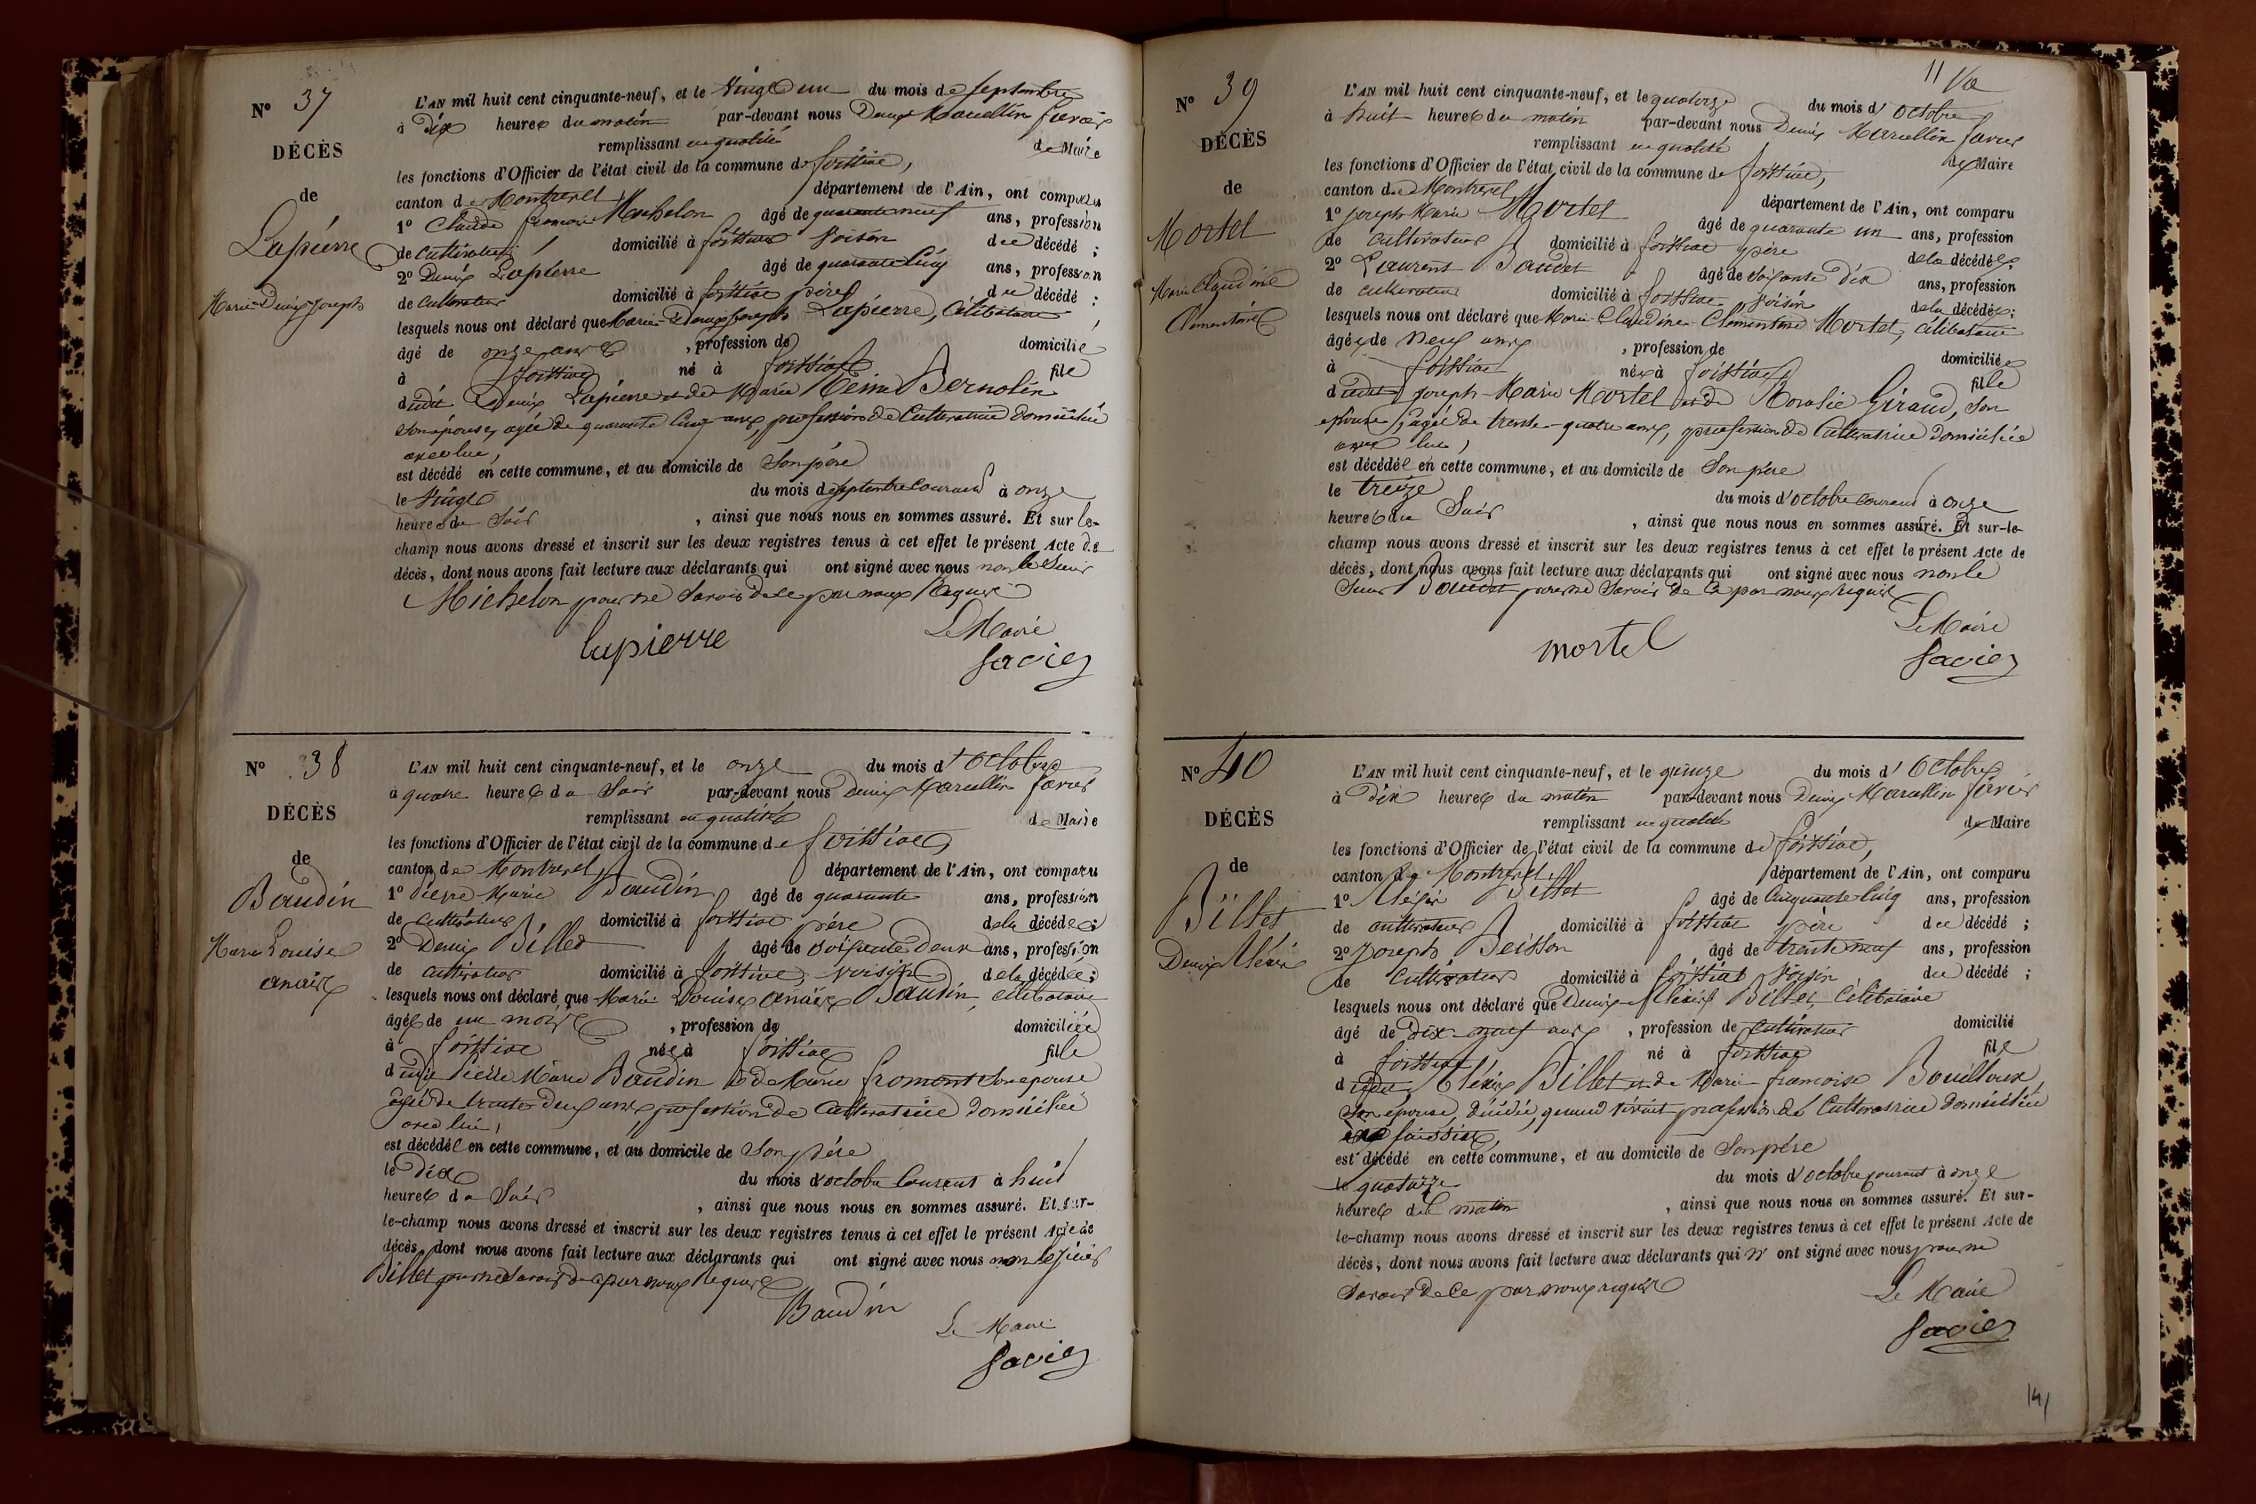 N° 37
DÉCÈS
de
Lapierre
Marie Denis Joseph
L'AN mil huit cent cinquante-neuf, et le Vingt un du mois de septembre
à Dix heures du matin par-devant nous Denis Marcellin favier
remplissant en qualité de Maire
les fonctions d'Officier de l'état civil de la commune de foissiat,
canton de Montrevel département de l'Ain, ont comparu
1° Claude françois Michelon âgé de quarante neuf ans, profession
de Cultivateur domicilié à foissiat Voisin du décédé ;
2° Denis Lapierre âgé de quarante cinq ans, profession
de Cultivateur domicilié à foissiat père du décédé ;
lesquels nous ont déclaré que Marie Denis Joseph Lapierre, Célibataire
âgé de onze ans , profession de domicilié
à foissiat né à foissiat fils
dudit Denis Lapierre et de Marie Reine Bernolin
son épouse, agée de quarante Cinq ans, profession de Cultivatrice domiciliée
avec lui,
est décédé en cette commune, et au domicile de Son père
le Vingt du mois de septembre courant à onze
heures du Soir , ainsi que nous nous en sommes assuré. Et sur le-
champ nous avons dressé et inscrit sur les deux registres tenus à cet effet le présent Acte de
décès, dont nous avons fait lecture aux déclarants qui ont signé avec nous non le Sieur
Michelon pour ne Savoir de ce par nous Requis
Lapierre Le Maire
favier
N° 38
DÉCÈS
de
Baudin
Marie Louise
anaïs
L'AN mil huit cent cinquante-neuf, et le onze du mois d'Octobre
à quatre heures du Soir par-devant nous Denis Marcellin favier
remplissant en qualité de Maire
les fonctions d'Officier de l'état civil de la commune de foissiat,
canton de Montrevel département de l'Ain, ont comparu
1° Pierre Marie Baudin âgé de quarante ans, profession
de Cultivateur domicilié à foissiat père de la décédée ;
2° Denis Billet âgé de soixante deux ans, profession
de cultivateur domicilié à foissiat, voisin de la décédée ;
lesquels nous ont déclaré que Marie Louise anaïs Baudin, célibataire
âgée de un mois , profession de domiciliée
à foissiat née à foissiat fille
dudit Pierre Marie Baudin et de Marie fromont son épouse
agée de trente deux ans, profession de Cultivatrice domiciliée
avec lui,
est décédée en cette commune, et au domicile de Son père
le Dix du mois d'octobre Courant à huit
heures du Soir , ainsi que nous nous en sommes assuré. Et sur-
le-champ nous avons dressé et inscrit sur les deux registres tenus à cet effet le présent Acte de
décès, dont nous avons fait lecture aux déclarants qui ont signé avec nous non le Sieur
Billet pour ne Savoir de ce par nous Requis
Baudin Le Maire
favier
11
N° 39
DÉCÈS
de
Mortel
Marie Claudine
Clémentine
L'AN mil huit cent cinquante-neuf, et le quatorze du mois d'octobre
à huit heures du matin par-devant nous Denis Marcellin favier
remplissant en qualité de Maire
les fonctions d'Officier de l'état civil de la commune de foissiat,
canton de Montrevel département de l'Ain, ont comparu
1° joseph Marie Mortel âgé de quarante un ans, profession
de Cultivateur domicilié à foissiat père de la décédée ;
2° Laurent Baudet âgé de soixante dix ans, profession
de cultivateur domicilié à foissiat Voisin de la décédée ;
lesquels nous ont déclaré que Marie Claudine Clémentine Mortel, célibataire
âgée de Neuf ans , profession de domiciliée
à foissiat née à foissiat fille
dudit joseph Marie Mortel et de Rosalie Giraud, Son
épouse, agée de trente-quatre ans, profession de Cultivatrice domiciliée
avec lui,
est décédée en cette commune, et au domicile de Son père
le treize du mois d'octobre courant à onze
heures du Soir , ainsi que nous nous en sommes assuré. Et sur-le-
champ nous avons dressé et inscrit sur les deux registres tenus à cet effet le présent Acte de
décès, dont nous avons fait lecture aux déclarants qui ont signé avec nous non le
Sieur Baudet pour ne Savoir de ce par nous requis
mortel Le Maire
favier
N° 40
DÉCÈS
de
Billet
Denis Aléxis
L'AN mil huit cent cinquante-neuf, et le quinze du mois d'Octobre
à Dix heures du matin par-devant nous Denis Marcellin favier
remplissant en qualité de Maire
les fonctions d'Officier de l'état civil de la commune de foissiat,
canton de Montrevel département de l'Ain, ont comparu
1° Aléxis Billet âgé de Cinquante-cinq ans, profession
de cultivateur domicilié à foissiat père du décédé ;
2° joseph Beisson âgé de trente neuf ans, profession
de Cultivateur domicilié à foissiat Voisin du décédé ;
lesquels nous ont déclaré que Denis Aléxis Billet, Célibataire
âgé de Dix-neuf ans , profession de Cultivateur domicilié
à foissiat né à foissiat fils
dudit Aléxis Billet et de Marie françoise Bouilloux
Son épouse, décédée, quand vivait profession de Cultivatrice domiciliée
à foissiat,
est décédé en cette commune, et au domicile de Son père
le quatorze du mois d'octobre courant à onze
heures du matin , ainsi que nous nous en sommes assuré. Et sur-
le-champ nous avons dressé et inscrit sur les deux registres tenus à cet effet le présent Acte de
décès, dont nous avons fait lecture aux déclarants qui n'ont signé avec nous pour ne
Savoir de ce par nous requis
Le Maire
favier
141